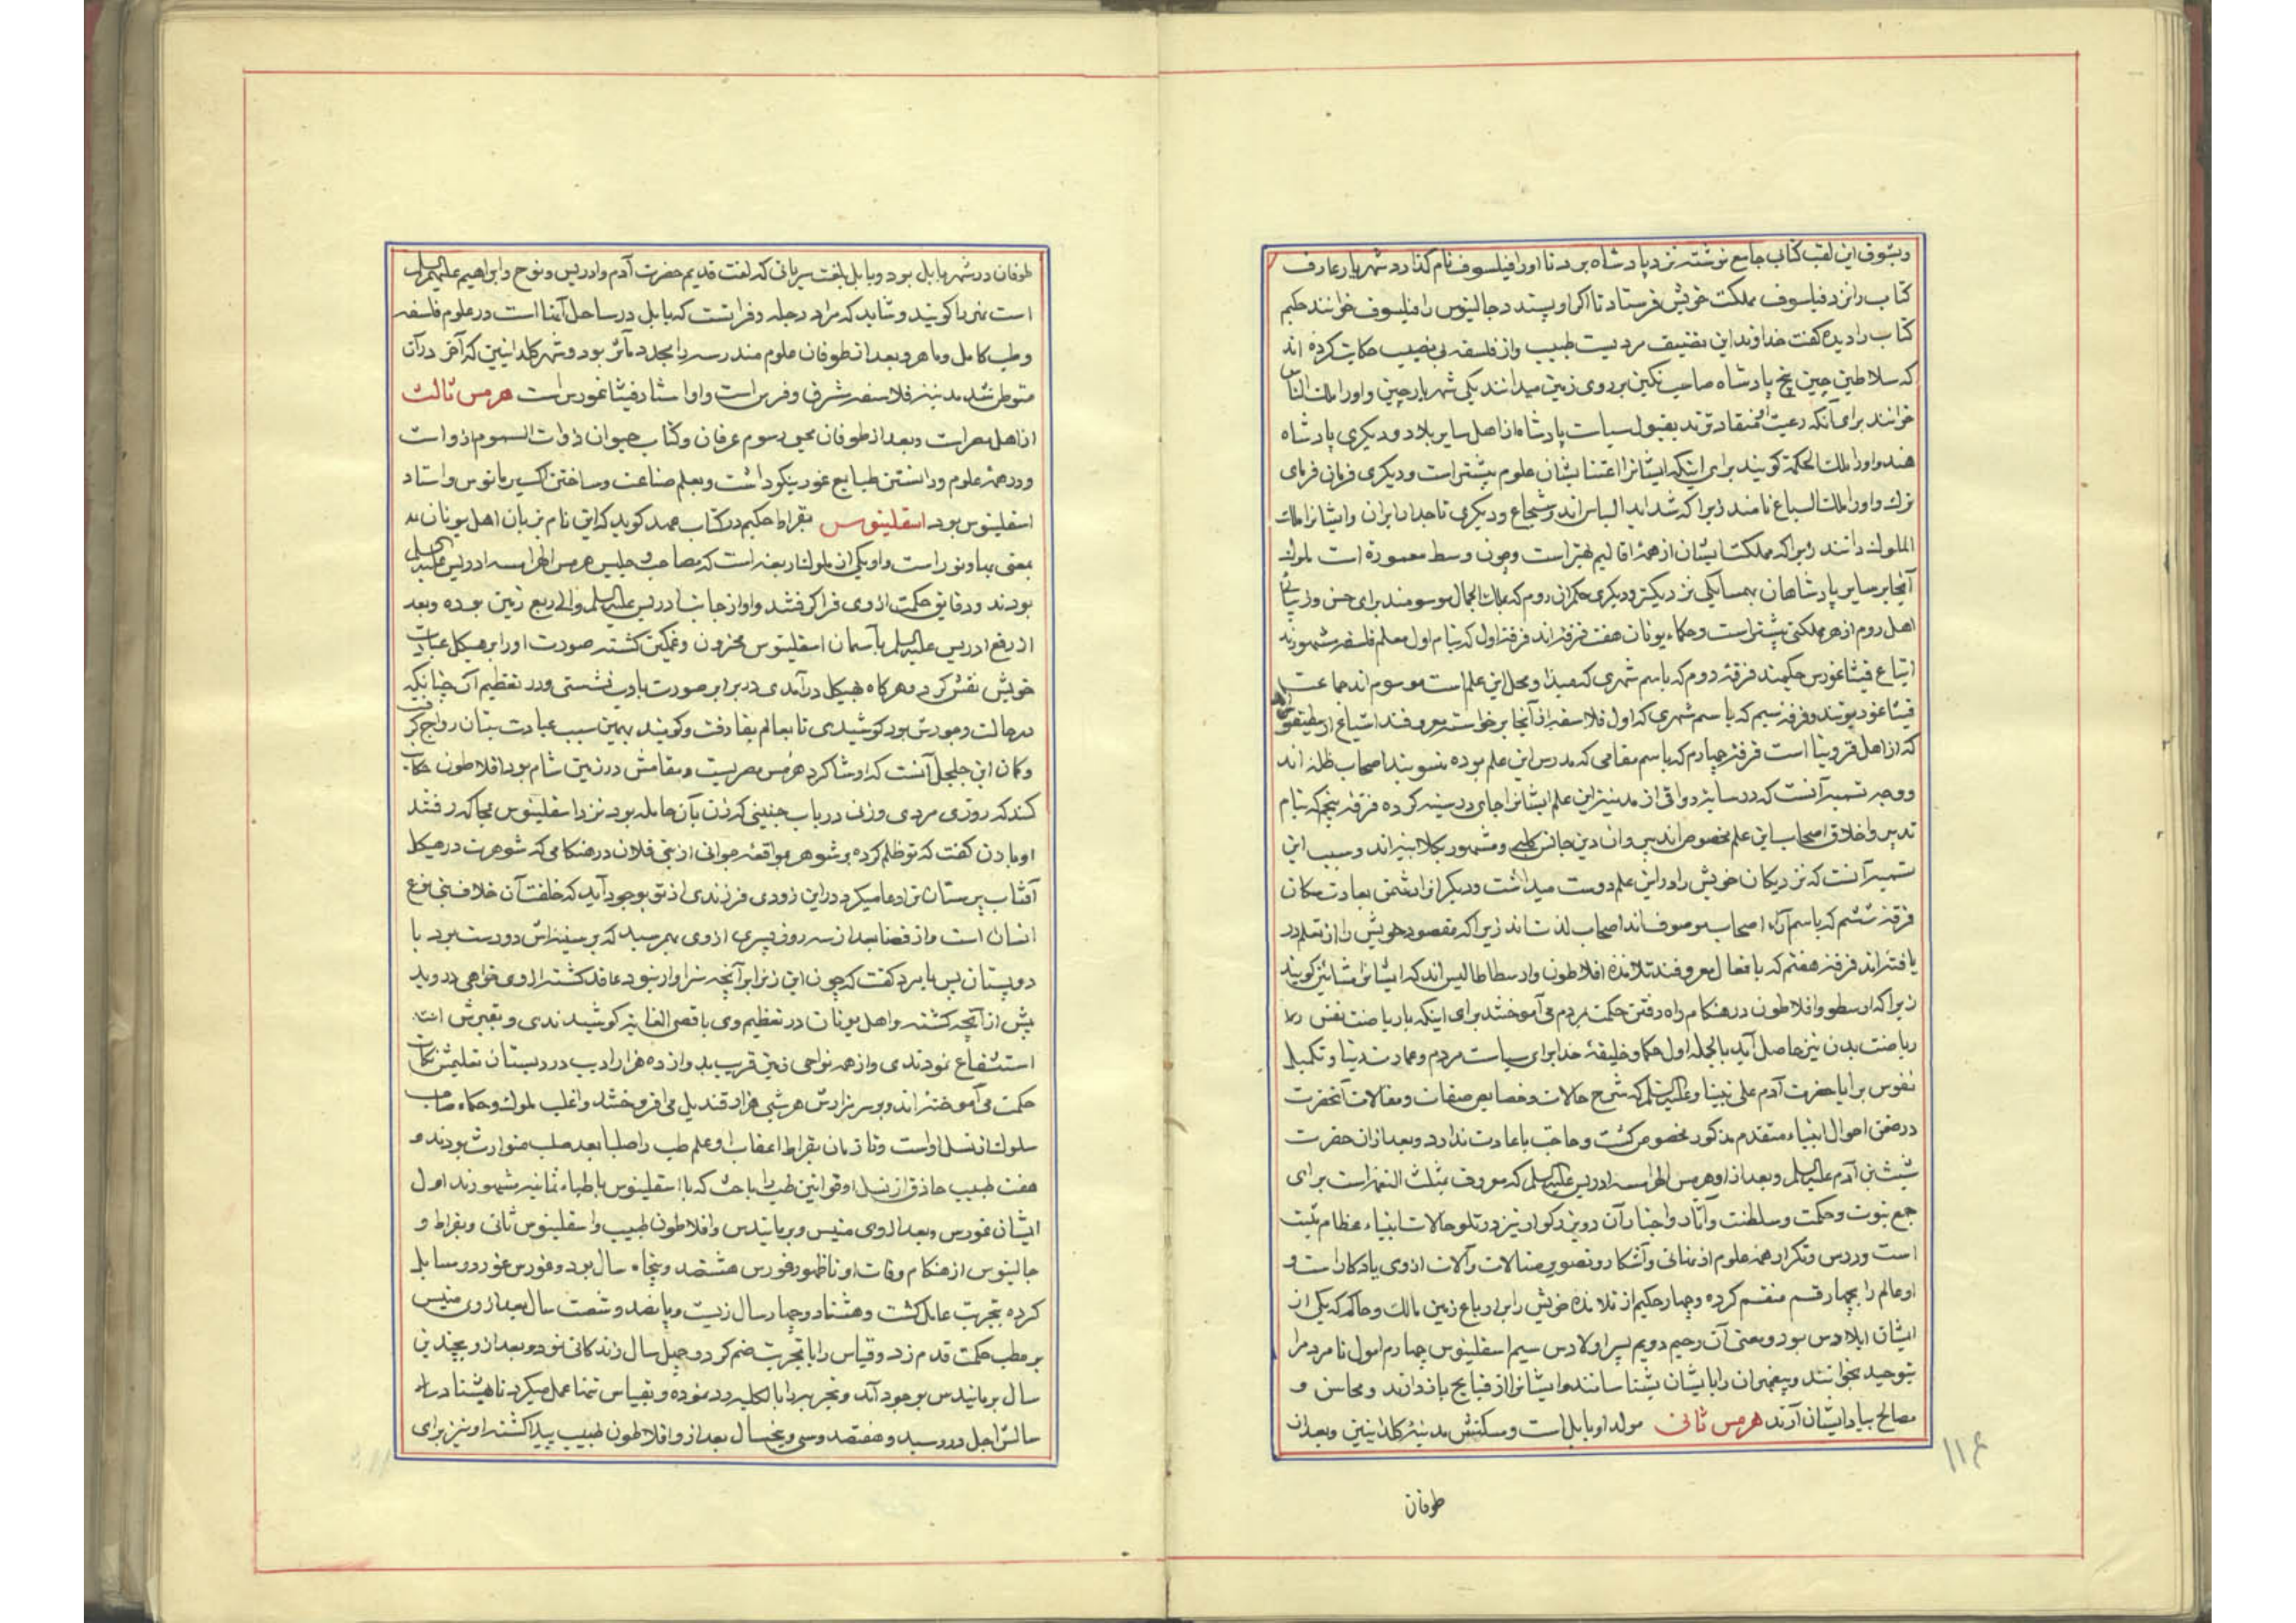 وبشوق این لقب کتاب جامع نوشته نزد پادشاه برد تا او را فیلسوف نام گذارد شهریار عارف
کتاب را نزد فیلسوف مملکت خویش فرستاد تا اگر او پسندد جالینوس را فیلسوف خوانند حکیم
کتاب را دیده گفت خداوند این تصنیف مردیست طبیب واز فلسفه بی نصیب حکایت کرده اند
که سلاطین چین پنج پادشاه صاحب نکین بر روی زمین میدانند یکی شهریار چین و او را ملک الناس
خوانند برای آنکه رعیت منقادترند بقبول سیاست پادشاه از اهل سایر بلاد و دیکری پادشاه
هند و او را ملک الحکمة کویند برای اینکه ایشانرا اعتنا بشان علوم بیشتر است و دیکری فرمان فرمای
ترک و او را ملک السباع نامند زیرا که شدید الباس اند و شجاع و دیکری تاجدار ایران و ایشانرا ملک
الملوک دانند زیرا که مملکت ایشان از همهٔ اقالیم بهتر است و چون وسط معموره است ملوک
آنجا بر سایر پادشاهان بهمسایکی نزدیکتر و دیکری حکمران روم که بملک الجمال موسومند برای حسن و زیبائی
اهل روم از هر مملکتی بیشتر است و حکماء یونان هفت فرقه اند فرقه اول که بنام اول معلم فلسفه مشهورند
اتباع فیثاغورس حکیمند فرقهٔ دوم که باسم شهری که مبدا و محل این علم است موسوم اند جماعت
فیثاغوریونند و فرقه سیم که باسم شهری که اول فلاسفه از آنجا برخواسته معروفند اشیاع
که از اهل قورینا است فرقه چهارم که باسم مقامی که مدرس این علم بوده منسوبند اصحاب ظله اند
ووجه تسمیه آنست که در سایه رواقی از مدینه این علم ایشانرا جای درسینه کرده فرقه پنجم که بنام
تدبیر و اخلاق اصحاب این علم مخصوص اند پیروان دین جانس کلبی و مشهور بکلابیه اند و سبب این
تسمیه آنست که نزدیکان خویش را در این علم دوست میداشت و دیکرانرا دشمن بعادت سکان
فرقه ششم که باسم آراء اصحاب موصوفند اصحاب لذت اند زیرا که مقصود خویش را از تعلم در
یافته اند فرقه هفتم که بافعال معروفند تلامذه افلاطون و ارسطاطالیس اند که ایشانرا مشائین کویند
زیرا که ارسطو و افلاطون در هنکام راه رفتن حکمت بمردم می آموختند برای اینکه با ریاضت نفس
ریاضت بدن نیز حاصل آید بالجمله اول حکما و خلیفهٔ خدا برای سیاست مردم و عمارت دنیا و تکمیل
نفوس برایا حضرت آدم علی نبینا وعلیه السلم که شرح حالات و خصایص صفات و مقالات آنحضرت
در ضمن احوال انبیاء متقدم مذکور مخصوص کشت و حاجت باعادت ندارد و بعد از ان حضرت
شیث بن آدم علیه السلم و بعد از او هرمس الهرامسه ادریس علیه السلم که معروف بمثلث النعم است برای
جمع نبوت و حکمت و سلطنت و آثار و اخبار آن دو بزرکوار نیز در تلو حالات انبیاء عظام ثبت
است و درس و تکرار همه علوم از نهانی و آشکار و تصویر مثالات و آلات از وی یادکار است و
او عالم را بچهار قسم منقسم کرده و چهار حکیم از تلامذه خویش را بر ارباع زمین مالک و حاکم که یکی از
ایشان ایلاوس بود و معنی آن رحیم دویم پسر او لاوس سیم اسقلینوس چهارم امول تا مردم را
بتوحید بخوانند و پیغمبران را بایشان بشناسانند و ایشانرا از قبایح بازدارند و محاسن و
مصالح بیاد ایشان آرند هرمس ثانی مولد او بابل است و مسکنش مدینهٔ کلدانیین و بعد از
طوفان
۱۱۶
طوفان در شهر بابل بود و بابل بلغت سریانی که لغت قدیم حضرت آدم و ادریس و نوح و ابراهیم علیهم السلم
است نهر را کویند و شاید که مراد دجله و فراتست که بابل در ساحل آنها است در علوم فلسفه
و طب کامل و ماهر و بعد از طوفان علوم مندرسه را مجدد مآثر بود و شهر کلدانیین که آخر در آن
متوطن شد مدینه فلاسفه شرق و فرس است و او استاد فیثاغورس است هرمس ثالث
از اهل مصر است و بعد از طوفان محیی رسوم عرفان و کتاب حیوان ذوات السموم از و است
و در همهٔ علوم و دانستن طبایع غور نیکو داشت و بعلم صناعت و ساختن اکسیر مانوس و استاد
اسقلینوس بود اسقلینوس بقراط حکیم در کتاب عهد کوید که این نام بزبان اهل یونان به
معنی بهاء و نور است و او یکی از ملوک اربعه است که مصاحب و جلیس هرمس الهرامسه ادریس علیه السلم
بودند و دقایق حکمت از وی فرا کرفتند و او از جانب ادریس علیه السلم والی ربع زمین بوده و بعد
از رفع ادریس علیه السلم بآسمان اسقلینوس محزون و غمکین کشته صورت او را بر هیکل عبادت
خویش نقش کرد و هرکاه بهیکل درآمدی در برابر صورت بادب نشستی و در تعظیم آن چنانکه
در حالت وجودش بود کوشیدی تا بعالم بقا رفت و کویند بهمین سبب عبادت بتان رواج کرفت
و کمان ابن جلجل آنست که او شاکرد هرمس مصریست و مقامش در زمین شام بود افلاطون حکایت
کند که روزی مردی و زنی در باب جنینی که زن بآن حامله بود نزد اسقلینوس بمحاکمه رفتند
او با زن کفت که تو ظلم کرده بر شوهر بمواقعهٔ جوانی از بنی فلان در هنکامی که شوهرت در هیکل
آفتاب پرستان ترا دعا میکرد در این زودی فرزندی از تو بوجود آید که خلقت آن خلاف بنی نوع
انسان است و از قضا بعد از سه روز پسری از وی بهم رسید که بر سینه اش دو دست بود با
دو پستان پس با مرد کفت که چون این زن را بر آنچه سزاوار نبود عاقد کشته از وی خواهی دروید
بیش از آنچه کشته و اهل یونان در تعظیم وی باقصی الغایه کوشیدندی و بقبرش
استشفاع نمودندی و از همه نواحی زمین قریب بده و از ده هزار ادیب در دبستان تعلیمش نکات
حکمت می آموخته اند و بر سر مزارش هر شبی هزار قندیل می افروختند و اغلب ملوک و حکماء صاحب
سلوک از نسل اوست و تا زمان بقراط اعقاب او علم طب را صلبا بعد صلب متوارث بودند و
هفت طبیب حاذق از نسل او قوانین طب را باحث که با اسقلینوس باطباء ثمانیه مشهورند اول
ایشان غورس و بعد از وی منیس و برمانیدس و افلاطون طبیب و اسقلینوس ثانی و بقراط و
جالینوس از هنکام وفات او تا ظهور غورس هشتصد و پنجاه سال بود و غورس غور در مسایل
کرده بتجربت عامل کشت و هشتاد و چهار سال زیست و پانصد و شصت سال بعد از وی منیس
بر مطب حکمت قدم زد و قیاس را با تجربت ضم کرد و چهل سال زندکانی نمود و بعد از و بچندین
سال برمانیدس بوجود آمد و تجربه را بالکلیه رد نموده و بقیاس تنها عمل میکرد تا هشتاد
سالش اجل در رسید و هفتصد و سی و پنجسال بعد از و افلاطون طبیب پیدا کشته او نیز برای